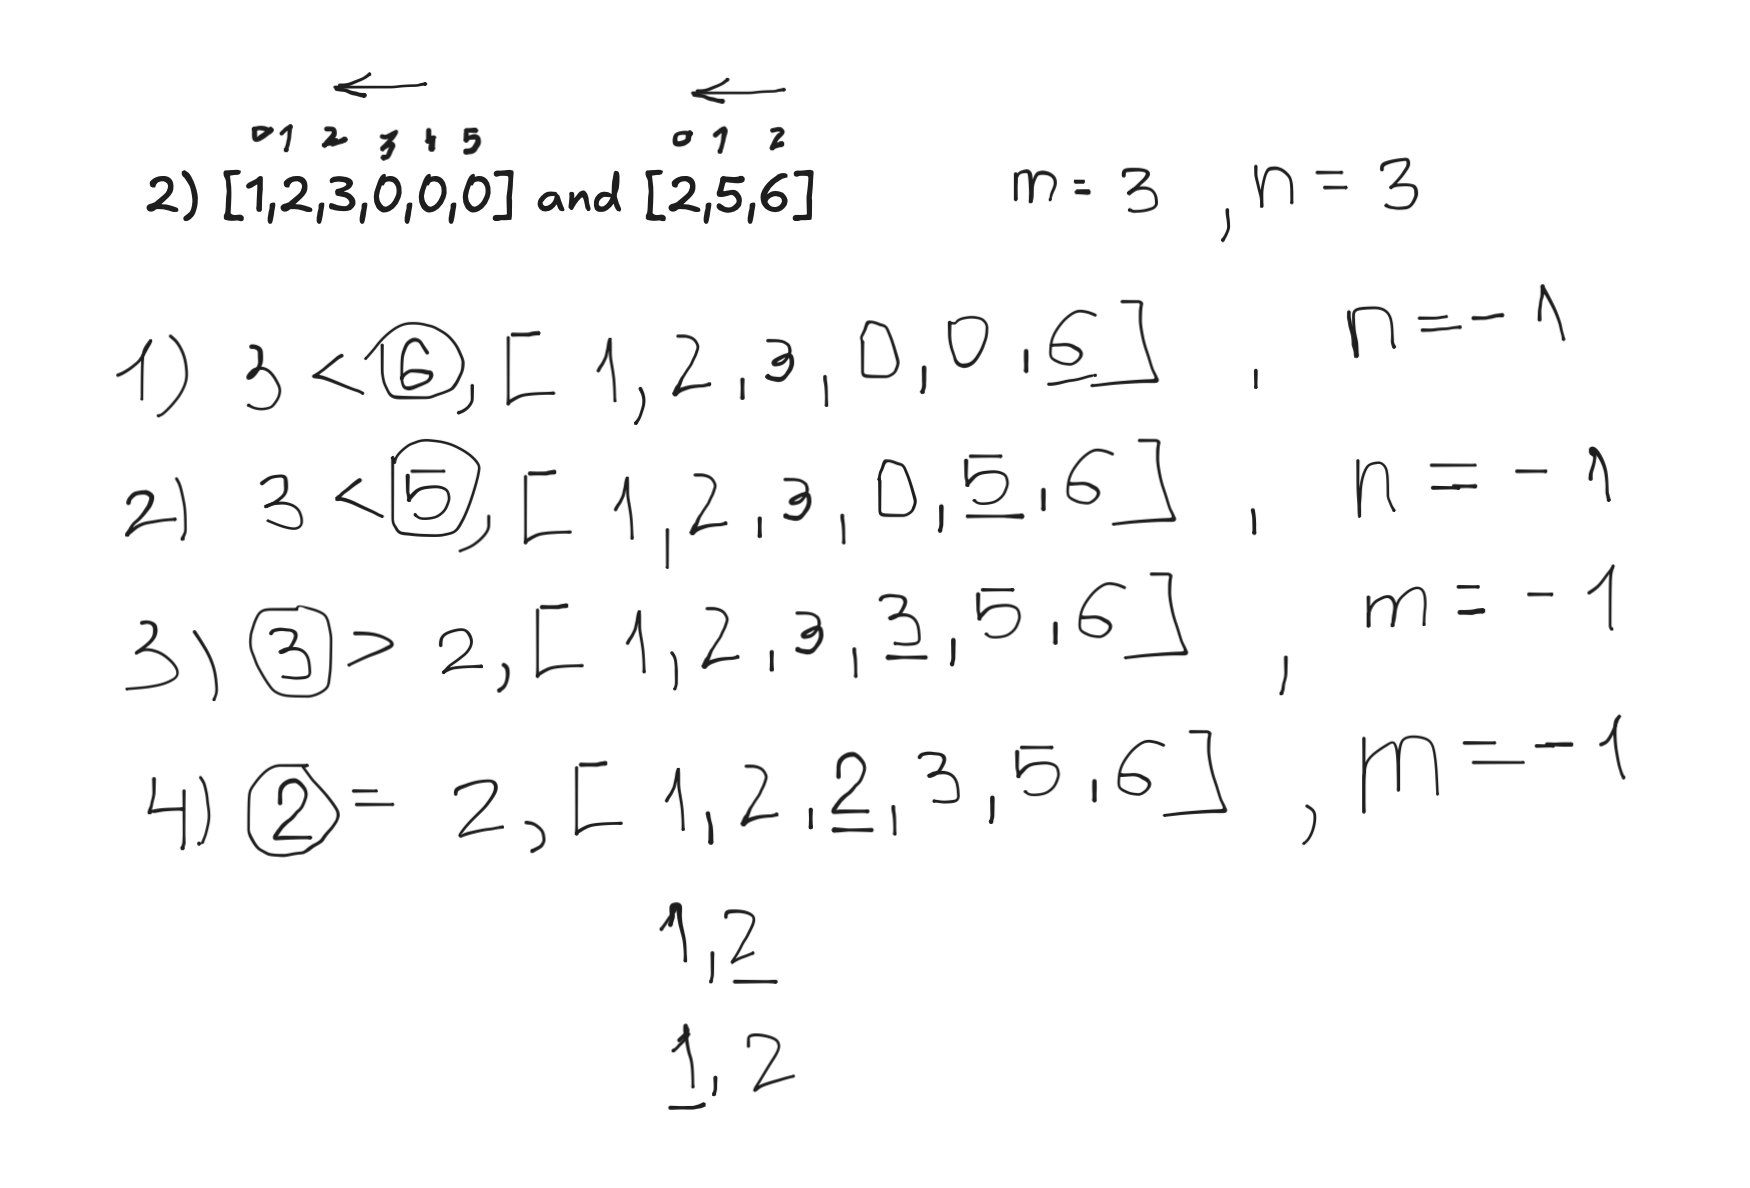 0 1 2 3 4 5 0 1 2
2) [1,2,3,0,0,0] and [2,5,6] m = 3 , n = 3
1) 3 < 6, [ 1, 2, 3, 0, 0, 6 ] , n = - 1
2) 3 < 5, [ 1, 2, 3, 0, 5, 6 ] , n = - 1
3) 3 > 2, [ 1, 2, 3, 3, 5, 6 ] , m = - 1
4) 2 = 2, [ 1, 2, 2, 3, 5, 6 ] , m = - 1
1, 2
1, 2